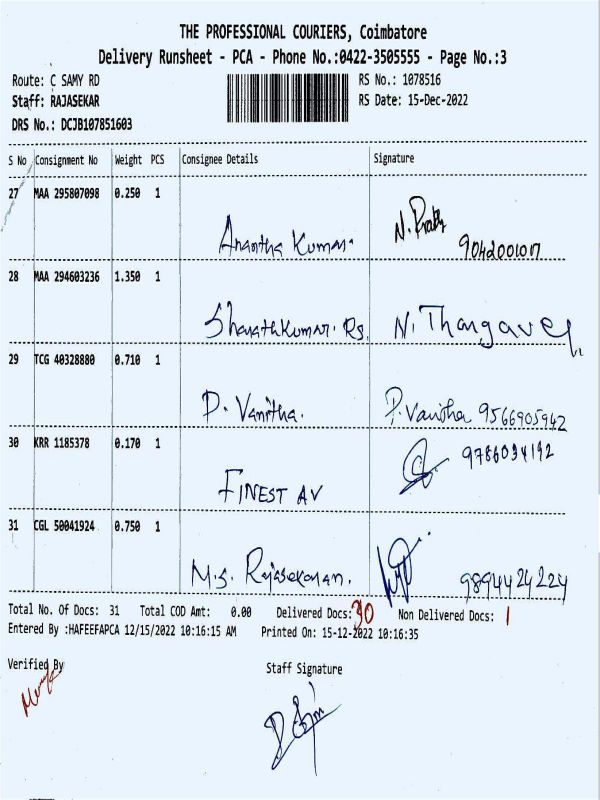 THE PROFESSIONAL COURIERS, Coimbatore
Delivery Runsheet - PCA - Phone No.:0422-3505555 - Page No.:3
Route: C SAMY RD RS No.: 1078516
Staff: RAJASEKAR RS Date: 15-Dec-2022
DRS No.: DCJB107851603
S No Consignment No Weight PCS Consignee Details Signature
27 MAA 295807098 0.250 1
Anantha Kumar. 9042001017
28 MAA 294603236 1.350 1
Sharathkumar. Rs. N. Thangavel
29 TCG 40328880 0.710 1
P. Vanitha. P. Vanitha 9566905942
30 KRR 1185378 0.170 1 9786034192
FINEST AV
31 CGL 50041924 0.750 1
M.S. Rajasekaran. 9894424224
Total No. Of Docs: 31 Total COD Amt: 0.00 Delivered Docs: 30 Non Delivered Docs: 1
Entered By :HAFEEFAPCA 12/15/2022 10:16:15 AM Printed On: 15-12-2022 10:16:35
Verified By Staff Signature